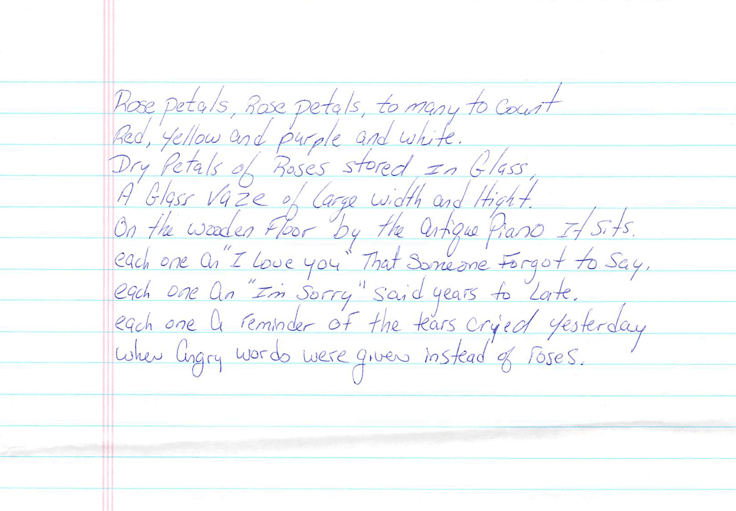 Rose petals, Rose petals, to many to Count
Red, yellow and purple and white.
Dry Petals of Roses stored In Glass,
A Glass Vaze of Large width and Hight.
On the wooden Floor by the Antique Piano It Sits.
each one an "I Love you" That Someone Forgot to Say.
each one An "I'm Sorry" Said years to Late.
each one a reminder of the tears cryed yesterday
when Angry words were given instead of roses.